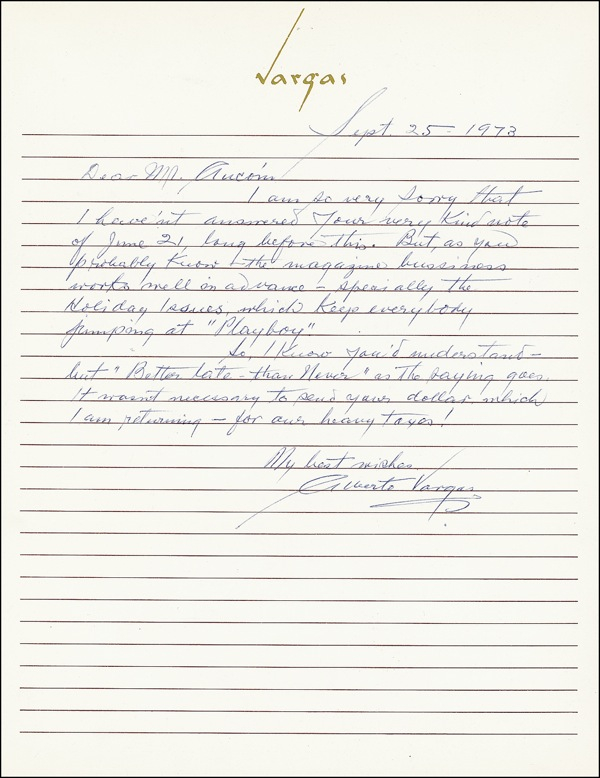 Vargas
Sept. 25 - 1973
Dear Mr. Aucoin
I am so very sorry that
I have'nt answered your very kind note
of June 21, long before this. But, as you
probably know - the magazine bussiness
works well in advance - specially the
Holiday Issues, which keep everybody
jumping at "Playboy"
So, I know you'd understand -
but "Better late - than Never" as the saying goes.
It wasn't necessary to send your dollar which
I am returning - for our heavy taxes!
My best wishes,
Alberto Vargas